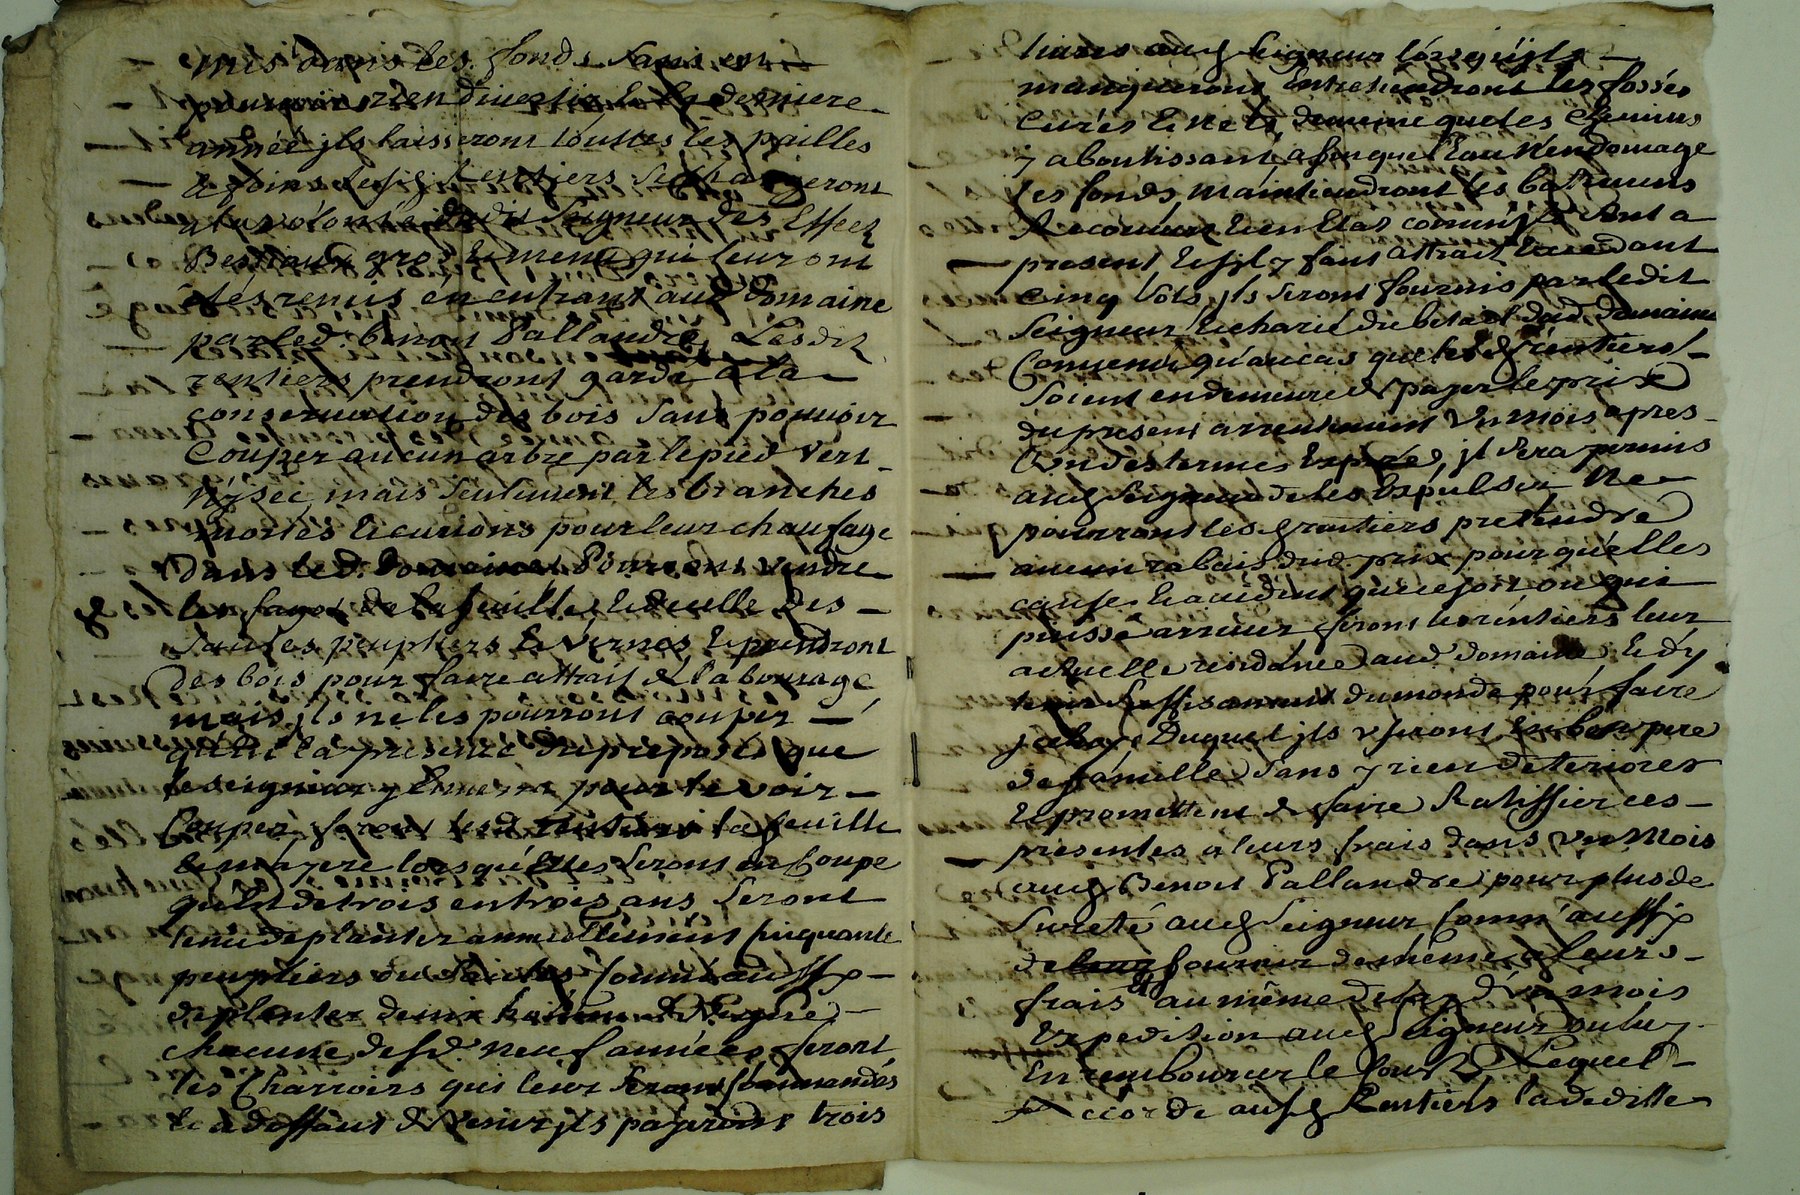 mis dans les fonds sans en
pouvoir rien divertir & la derniere
année jls laisseront touttes les pailles
& foins lesd. Rentiers se chargeront
a la volonté dudit Seigneur des Effets
Bestiaux gros & menu qui leur ont
étés remis en entrant aud. Domaine
par led. benoit Pallandre, Lesdits
rentiers prendront garde a la
conservation des bois sans pouvoir
Couper aucun arbre par le pied vert
ny sec, mais seulement les branches
mortes & curions pour leur chaufage
Dans led. Domaine Pourront vendre
les fagot de la feuille & d'icelle des
saules peupliers & vernes & prendront
des bois pour faire attrait de labourage
mais jls ne les pourront couper
qu'en la presence du preposés que
le seigneur y pour le voir
Couper, seront lesd. rentiers la feuille
lorsqu'elles seront en coupe
qu'est de trois en trois ans Seront
tenu de planter annuellement cinquante
peupliers ou saules comm'aussy
de planter
chacune desd. neuf années feront
les Charroirs qui leur seront commandés
& a deffaut de venir jls payeront trois
livres aud. Seigneur lorsqu'jls
manqueront Entretiendront les fossés
Curés & nets, de meme que les chemins
y aboutissant, afin que l'Eau n'endomage
les fonds, maintiendront les batimens
a recouvert & en Etat comm'jls sont a
present & s'jl y faut attrait Excedant
cinq sols, jls seront fournis par ledit
Seigneur & charié du betail dud. domaine
Convenu qu'au cas que lesd. rentiers
soient en demeure de payer le prix
du present arrentement un mois apres
l'un des termes Expiré, jl sera permis
aud. Seigneur de les Expulser Ne
pourront lesd. rentiers pretendre
aucun rabais dud. prix pour qu'elles
cause & accident que ce soit ou qui
puisse arriver feront les rentiers leur
actuelle residance aud. domaine, & d'y
tenir suffisamment du monde pour faire
Duquel jls useront En bon pere
de famille sans y rien deteriorer
& promettent de faire Ratiffier ces
presentes a leurs frais dans un Mois
aud. Benoit Pallandre pour plus de
Sureté aud. Seigneur Comm'aussy
de fournir de même a leurs
frais & au même delay d'un mois
Expedition aud. Seigneur ou luy
En rembourcer le Lequel
Accorde ausd. Rentiers ladeditte